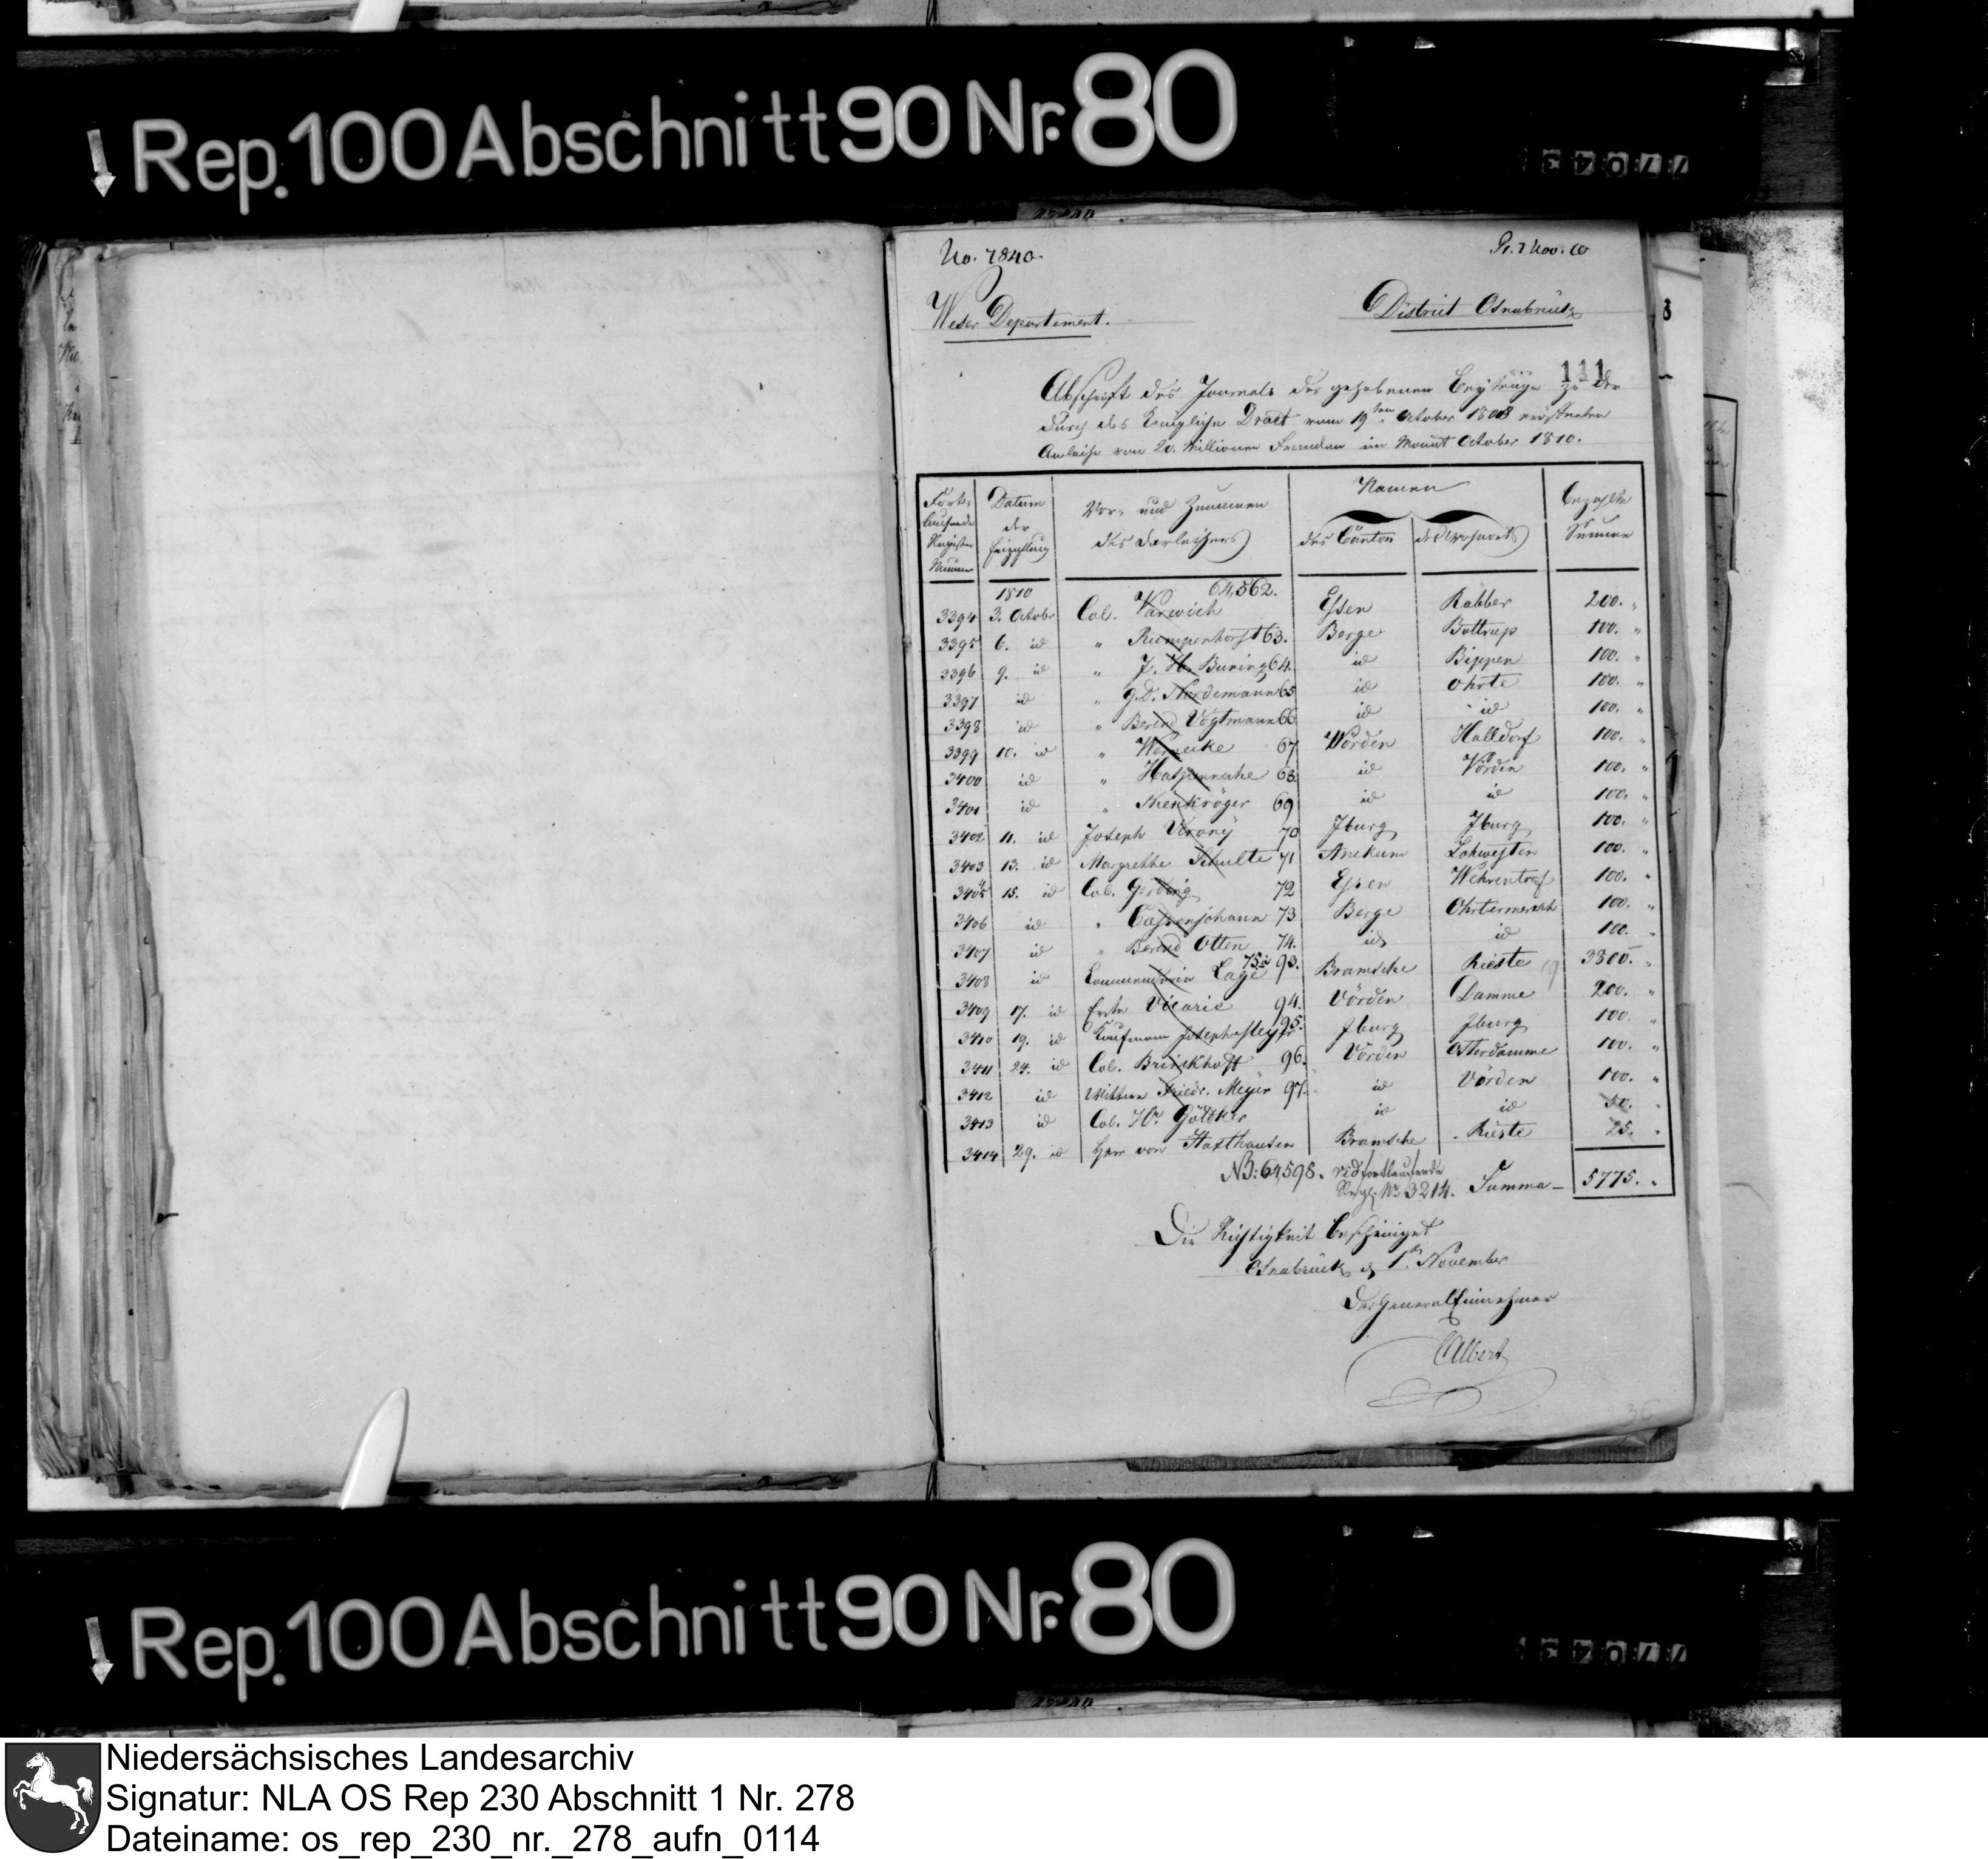 Rep. 100 Abschnitt 90 Nr. 80
77043
No. 7840.
Pr. 7 Nov. 10
Weser Departement.
District Osnabrück
111
Abschrift des Journals der gehobenen Beyträge zu der
durch das Königliche Decret vom 19ten October 1808 eröffneten
Anleihe von 20. Millionen Franken im Monat October 1810.
Fortlaufende Register Nummer | Datum der Einzahlung | Vor- und Zunamen des Darleihers | Namen des Canton | des Wohnorts | bezahlte Summe
1810 64,562.
3394 3. Octobr Col. Varwich Essen Rabber 200. "
3395 6. id " Rumpenhorst 63. Berge Bottrup 100. "
3396 9. id " J. H. Buning 64. id Bippen 100. "
3397 id " G.D. Nordemann 65 id Ohrte 100. "
3398 id " Berend Vogtmann 66 id id 100. "
3399 10. id " Wernecke 67 Vörden Halldorf 100. "
3400 id " 68. id Vörden 100. "
3401 id " Nienkröger 69 id id 100. "
3402 11. id Joseph Verony 70 Iburg Iburg 100. "
3403 13. id Margrethe Schulte 71 Ankum 100. "
3405 15. id Col. Gerding 72 Essen Wehrentrof 100. "
3406 id " Caspenjohann 73 Berge Ohrtermersch 100. "
3407 id " Berend Otten 74. id id 100. "
3408 id Commenderie Lage 75 a 93. Bramsche Rieste 19 3800. "
3409 17. id Erste Vicarie 94. Vörden Damme 200. "
3410 19. id Kaufmann Joseph Meyer 95. Iburg Iburg 100. "
3411 24. id Col. Brinckhoff 96. Vörden Osterdamme 100. "
3412 id Wittwe Friedr. Meyer 97. id Vörden 100. "
3413 id Col. Hr Göttker id id 50. "
3414 29. id Herr von Haxthausen Bramsche Rieste 25. "
NB: 64,598. vid fortlaufende
Regr. No 3214. Summa — 5775. "
Die Richtigkeit bescheiniget
Osnabrück d 1ten November
Der General Einnehmer
Albert
Rep. 100 Abschnitt 90 Nr. 80
77043
Niedersächsisches Landesarchiv
Signatur: NLA OS Rep 230 Abschnitt 1 Nr. 278
Dateiname: os_rep_230_nr._278_aufn_0114